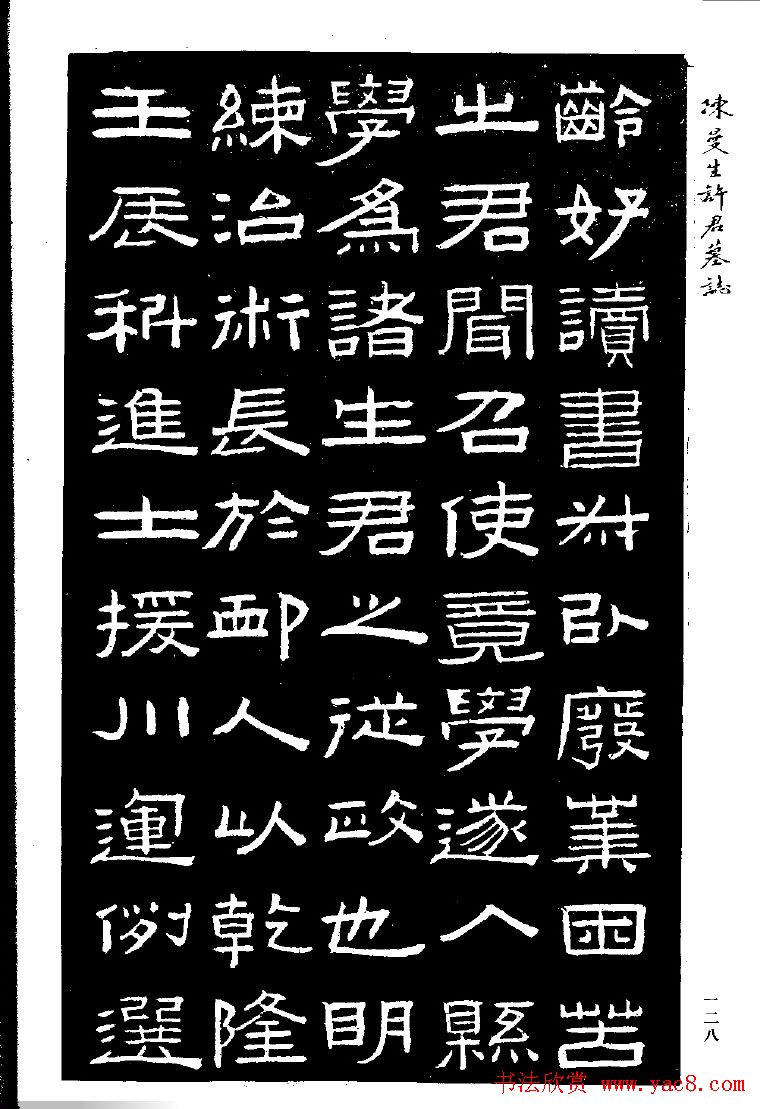 陳曼生許君墓誌
齡好讀書廢業困苦
之君聞召使竟學遂入縣
學為諸生君之從政也明
練治術長於卹人以乾隆
壬辰科進士援川運例選
一二八
书法欣赏 www.yac8.com